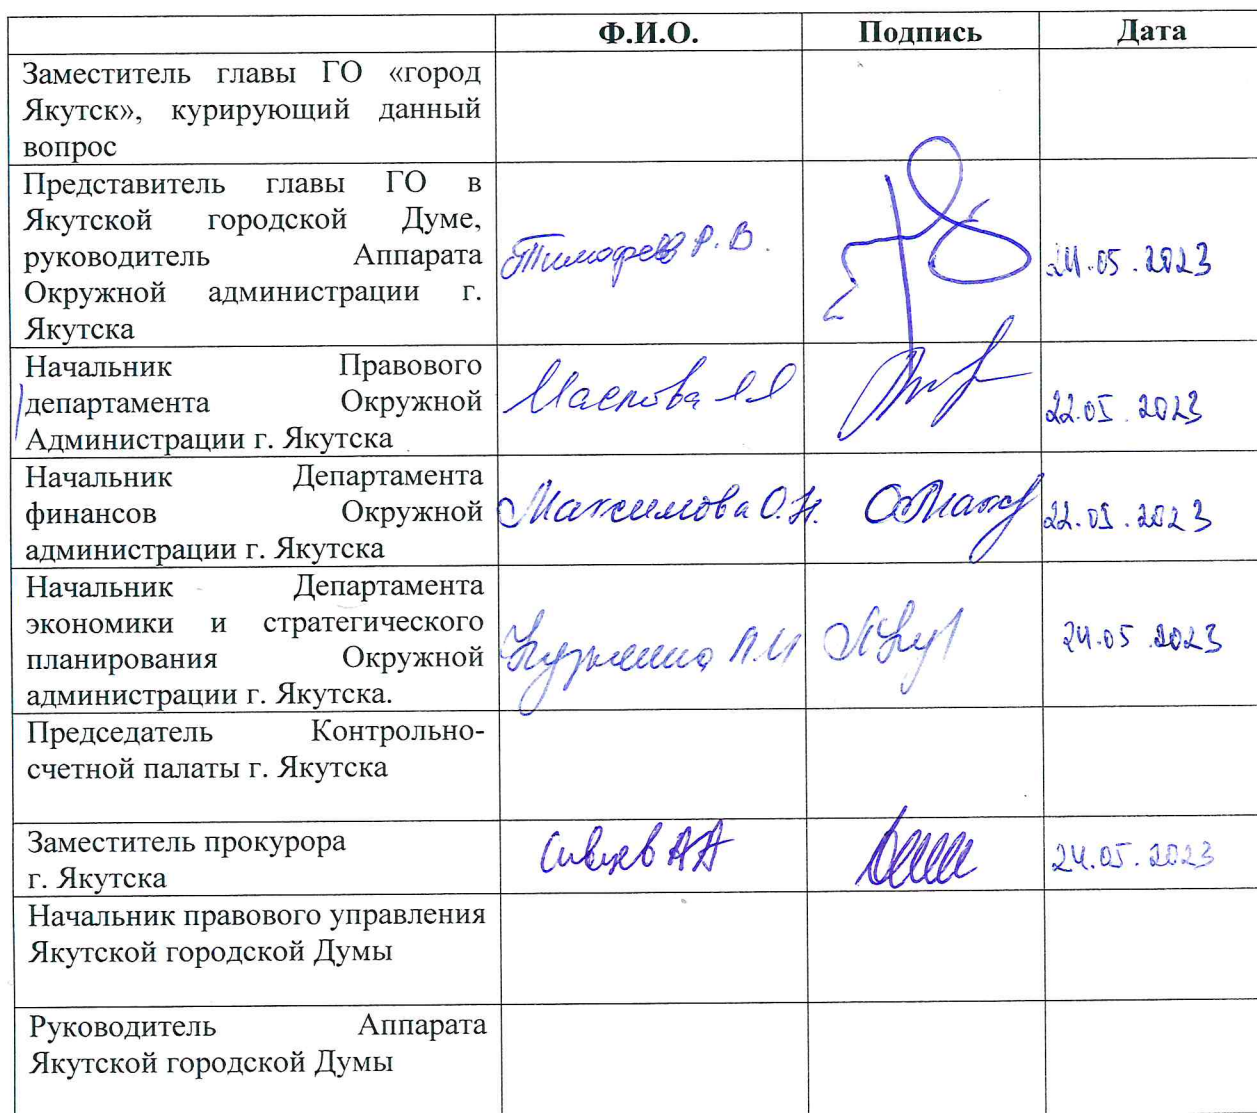 Ф.И.О. Подпись Дата
Заместитель главы ГО «город
Якутск», курирующий данный
вопрос
Представитель главы ГО в
Якутской городской Думе,
руководитель Аппарата
Окружной администрации г.
Якутска
Тимофеев Р.В. 24.05.2023
Начальник Правового
департамента Окружной
Администрации г. Якутска
22.05.2023
Начальник Департамента
финансов Окружной
администрации г. Якутска
Максимова О.Н. 22.05.2023
Начальник Департамента
экономики и стратегического
планирования Окружной
администрации г. Якутска.
24.05.2023
Председатель Контрольно-
счетной палаты г. Якутска
Заместитель прокурора
г. Якутска
Сивцев АА 24.05.2023
Начальник правового управления
Якутской городской Думы
Руководитель Аппарата
Якутской городской Думы